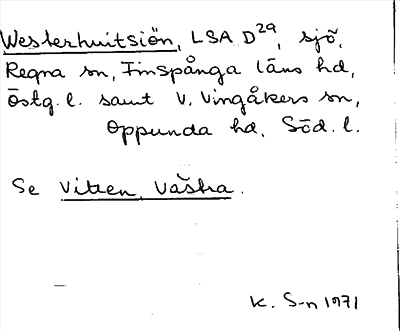 Westerhuitsiön, LSA D29, sjö,
Regna sn, Finspånga läns hd,
Östg. l. samt V. Vingåkers sn,
Oppunda hd, Söd. l.
Se Viken, Västra.
K. S-n 1971